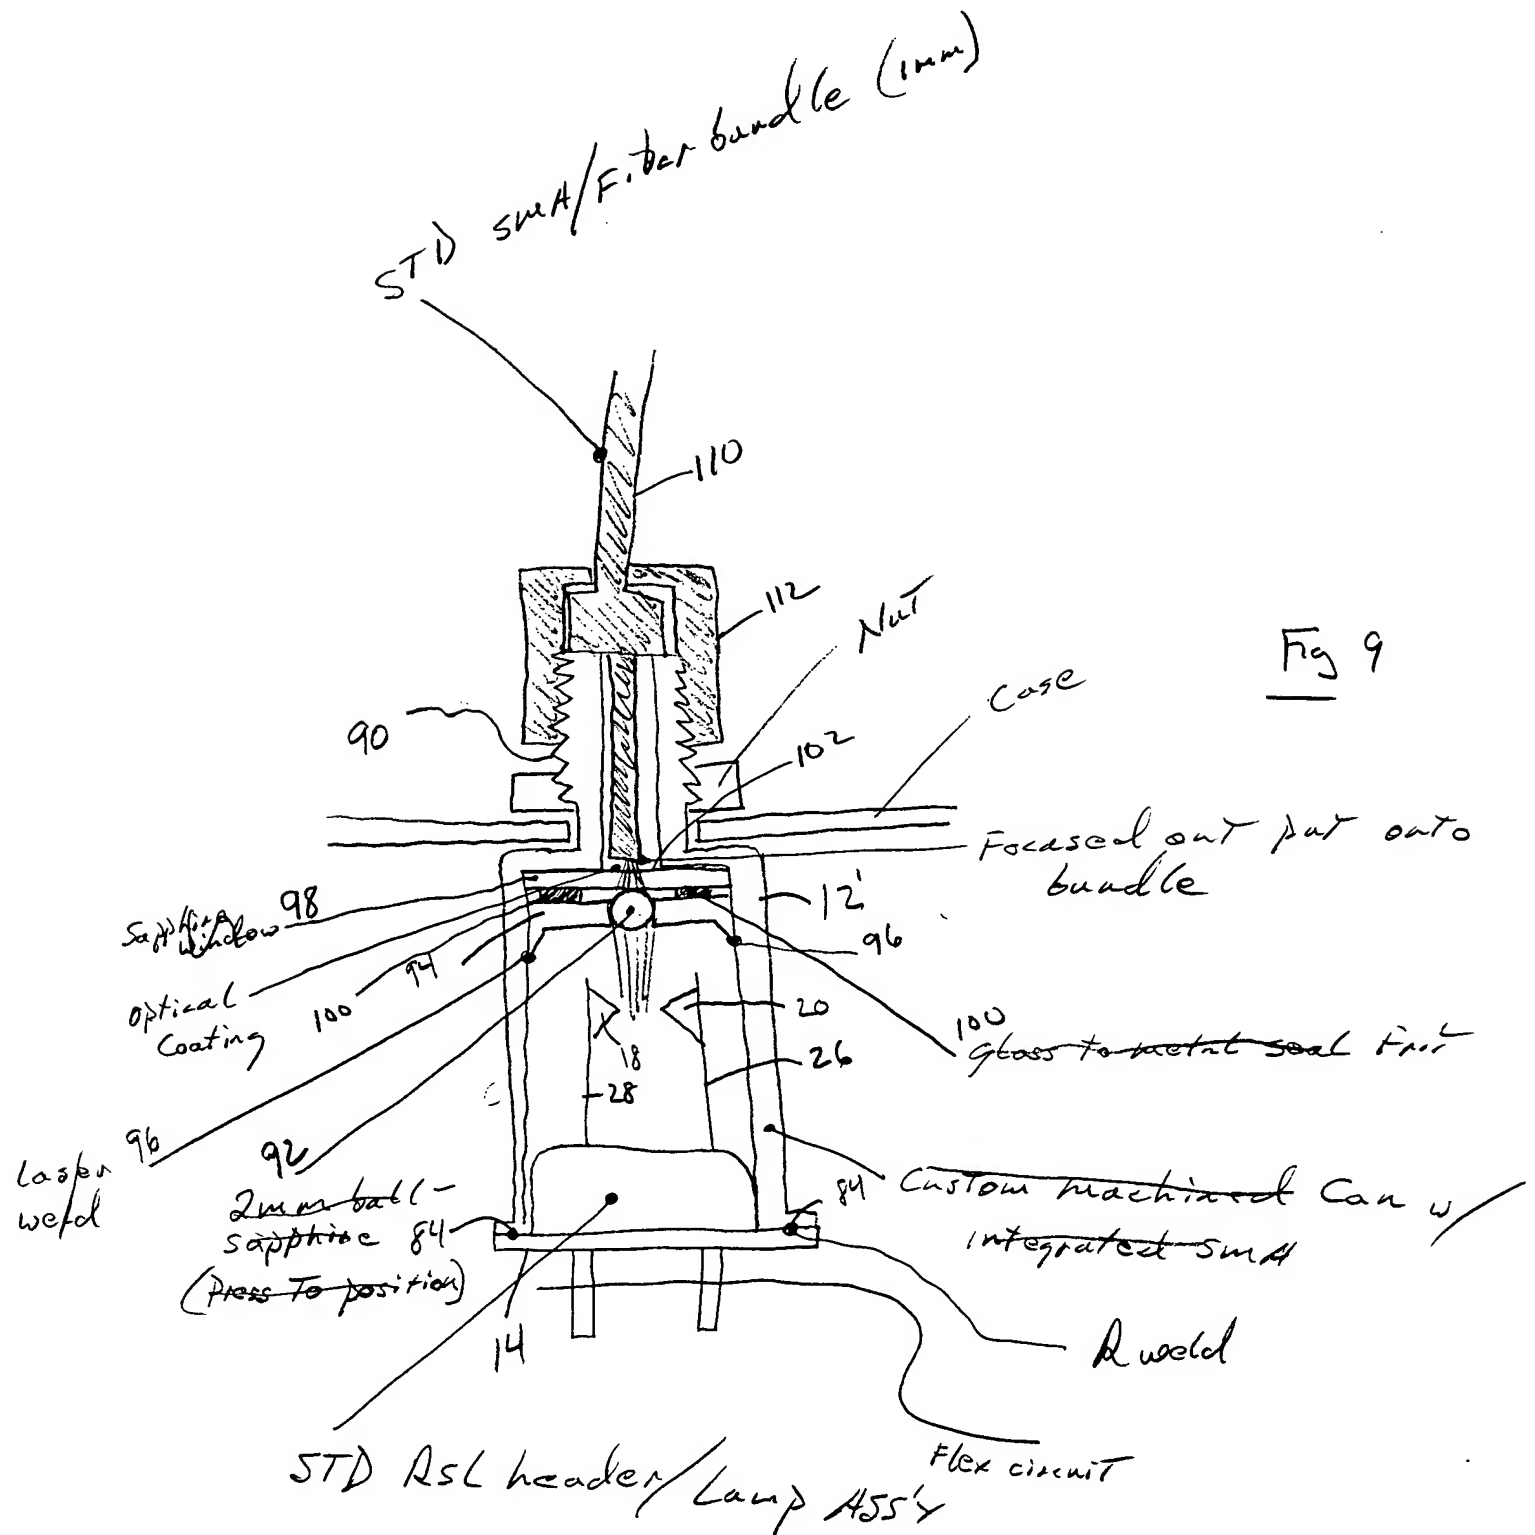 STD SMA/Fiber bundle (1mm)
110
112
Nut
Fig 9
Case
90
102
Focused out put onto
bundle
12'
Sapphire
window 98
96
94
Optical
Coating
100
20
18
26
28
100
Glass to metal seal Frit
96
Laser
weld
92
2mm ball-
sapphire
(Press to position)
84
84
Custom machined Can w/
integrated SMA
14
R weld
STD RSL header/Lamp Ass'y
Flex circuit